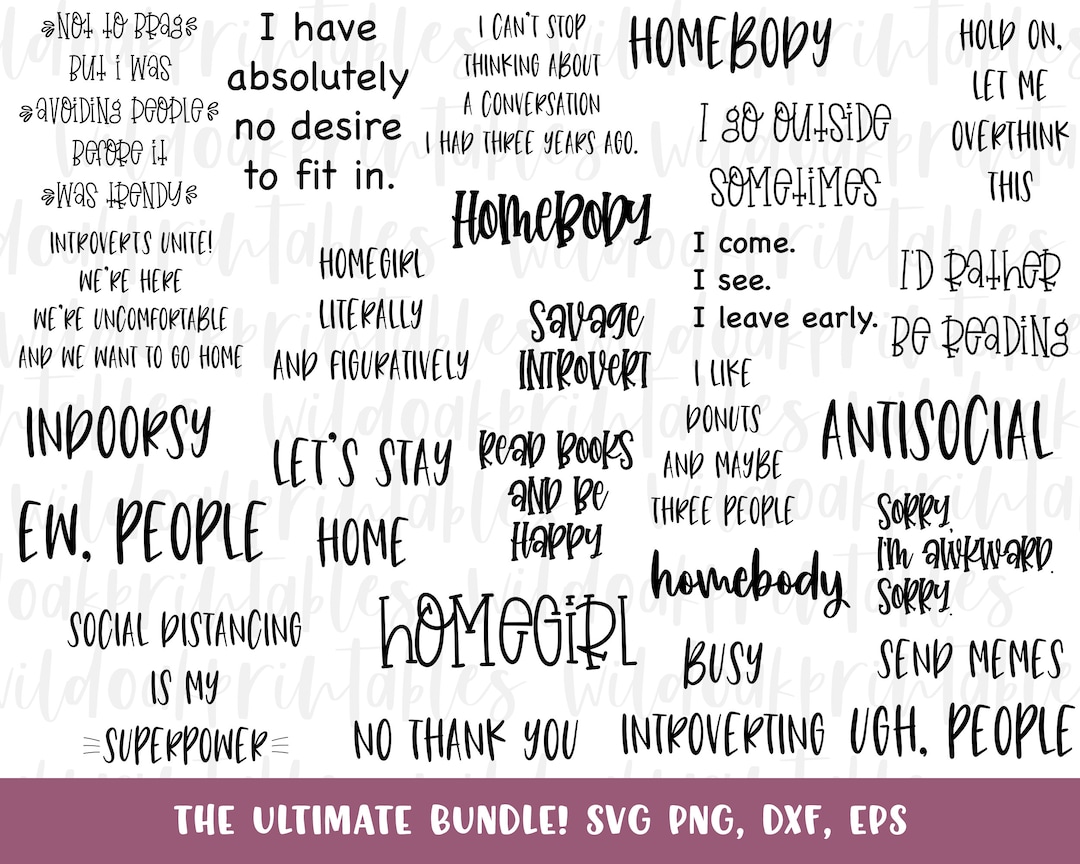 NOT TO BRAG
BUT I WAS
AVOIDING PEOPLE
BEFORE IT
WAS TRENDY
I have
absolutely
no desire
to fit in.
I CAN'T STOP
THINKING ABOUT
A CONVERSATION
I HAD THREE YEARS AGO.
HOMEBODY
I GO OUTSIDE
SOMETIMES
HOLD ON,
LET ME
OVERTHINK
THIS
INTROVERTS UNITE!
WE'RE HERE
WE'RE UNCOMFORTABLE
AND WE WANT TO GO HOME
HOMEGIRL
LITERALLY
AND FIGURATIVELY
HOMEBODY
SAVAGE
INTROVERT
I come.
I see.
I leave early.
I'D RATHER
BE READING
INDOORSY
LET'S STAY
HOME
READ BOOKS
AND BE
HAPPY
I LIKE
DONUTS
AND MAYBE
THREE PEOPLE
ANTISOCIAL
EW, PEOPLE
SORRY,
I'M AWKWARD.
SORRY.
homebody
SOCIAL DISTANCING
IS MY
SUPERPOWER
HOMEGIRL
BUSY
INTROVERTING
SEND MEMES
NO THANK YOU
UGH, PEOPLE
wildoakprintables
THE ULTIMATE BUNDLE! SVG PNG, DXF, EPS